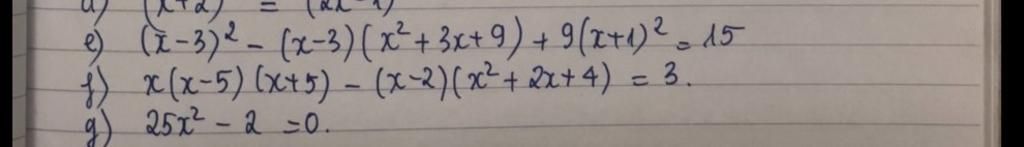 d) (x+2)² = (2x-1)
e) (x-3)² - (x-3)(x²+3x+9) + 9(x+1)² = 15
f) x(x-5)(x+5) - (x-2)(x²+2x+4) = 3.
g) 25x² - 2 = 0.